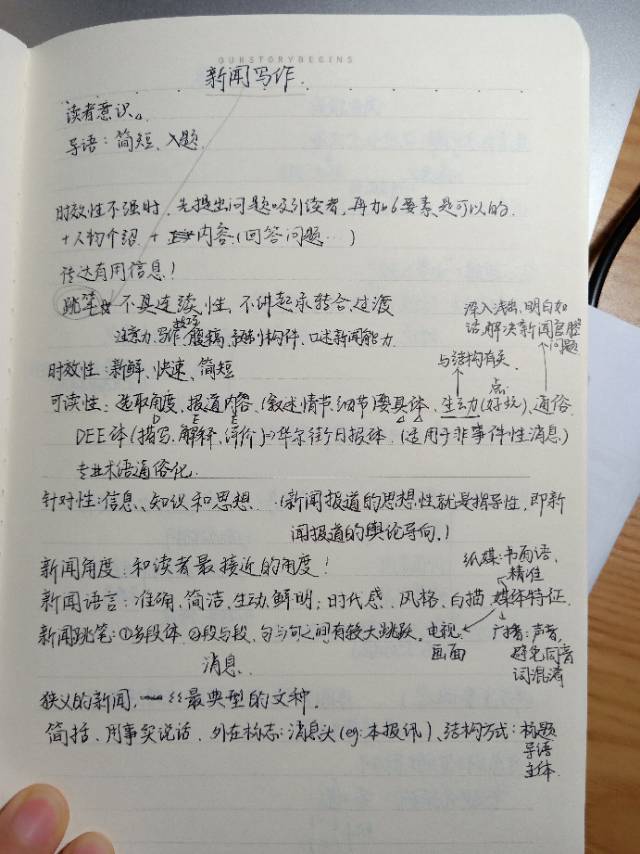 OURSTORYBEGINS
新闻写作.
读者意识。
导语：简短、入题.
时效性不强时，先提出问题吸引读者，再加6要素是可以的.
+人物介绍 + 内容（回答问题…）
传达有用信息！
跳笔 不具连续性，不讲起承转合、过渡
技巧
注意力、写作腹稿、构件、口述新闻能力.
深入浅出，明白如
话，解决新闻官腔
问题
与结构有关.
时效性：新鲜、快速、简短
点.
可读性：选取角度、报道内容、（叙述情节、细节）要具体、生动（好玩）、通俗.
D E E
DEE体（描写、解释、评价）⇒华尔街日报体.（适用于非事件性消息）
专业术语通俗化.
针对性：信息、知识和思想.（新闻报道的思想性就是指导性，即新
闻报道的舆论导向.）
新闻角度：和读者最接近的角度！
纸媒：书面语，
精准
新闻语言：准确、简洁、生动、鲜明；时代感、风格、白描、媒体特征.
新闻跳笔：①多段体 ②段与段、句与句之间有较大跳跃.
电视：
画面
广播：声音，
避免同音
词混淆
消息.
狭义的新闻，最典型的文种.
简括、用事实说话、外在标志：消息头（eg：本报讯）、结构方式：标题
导语
主体.